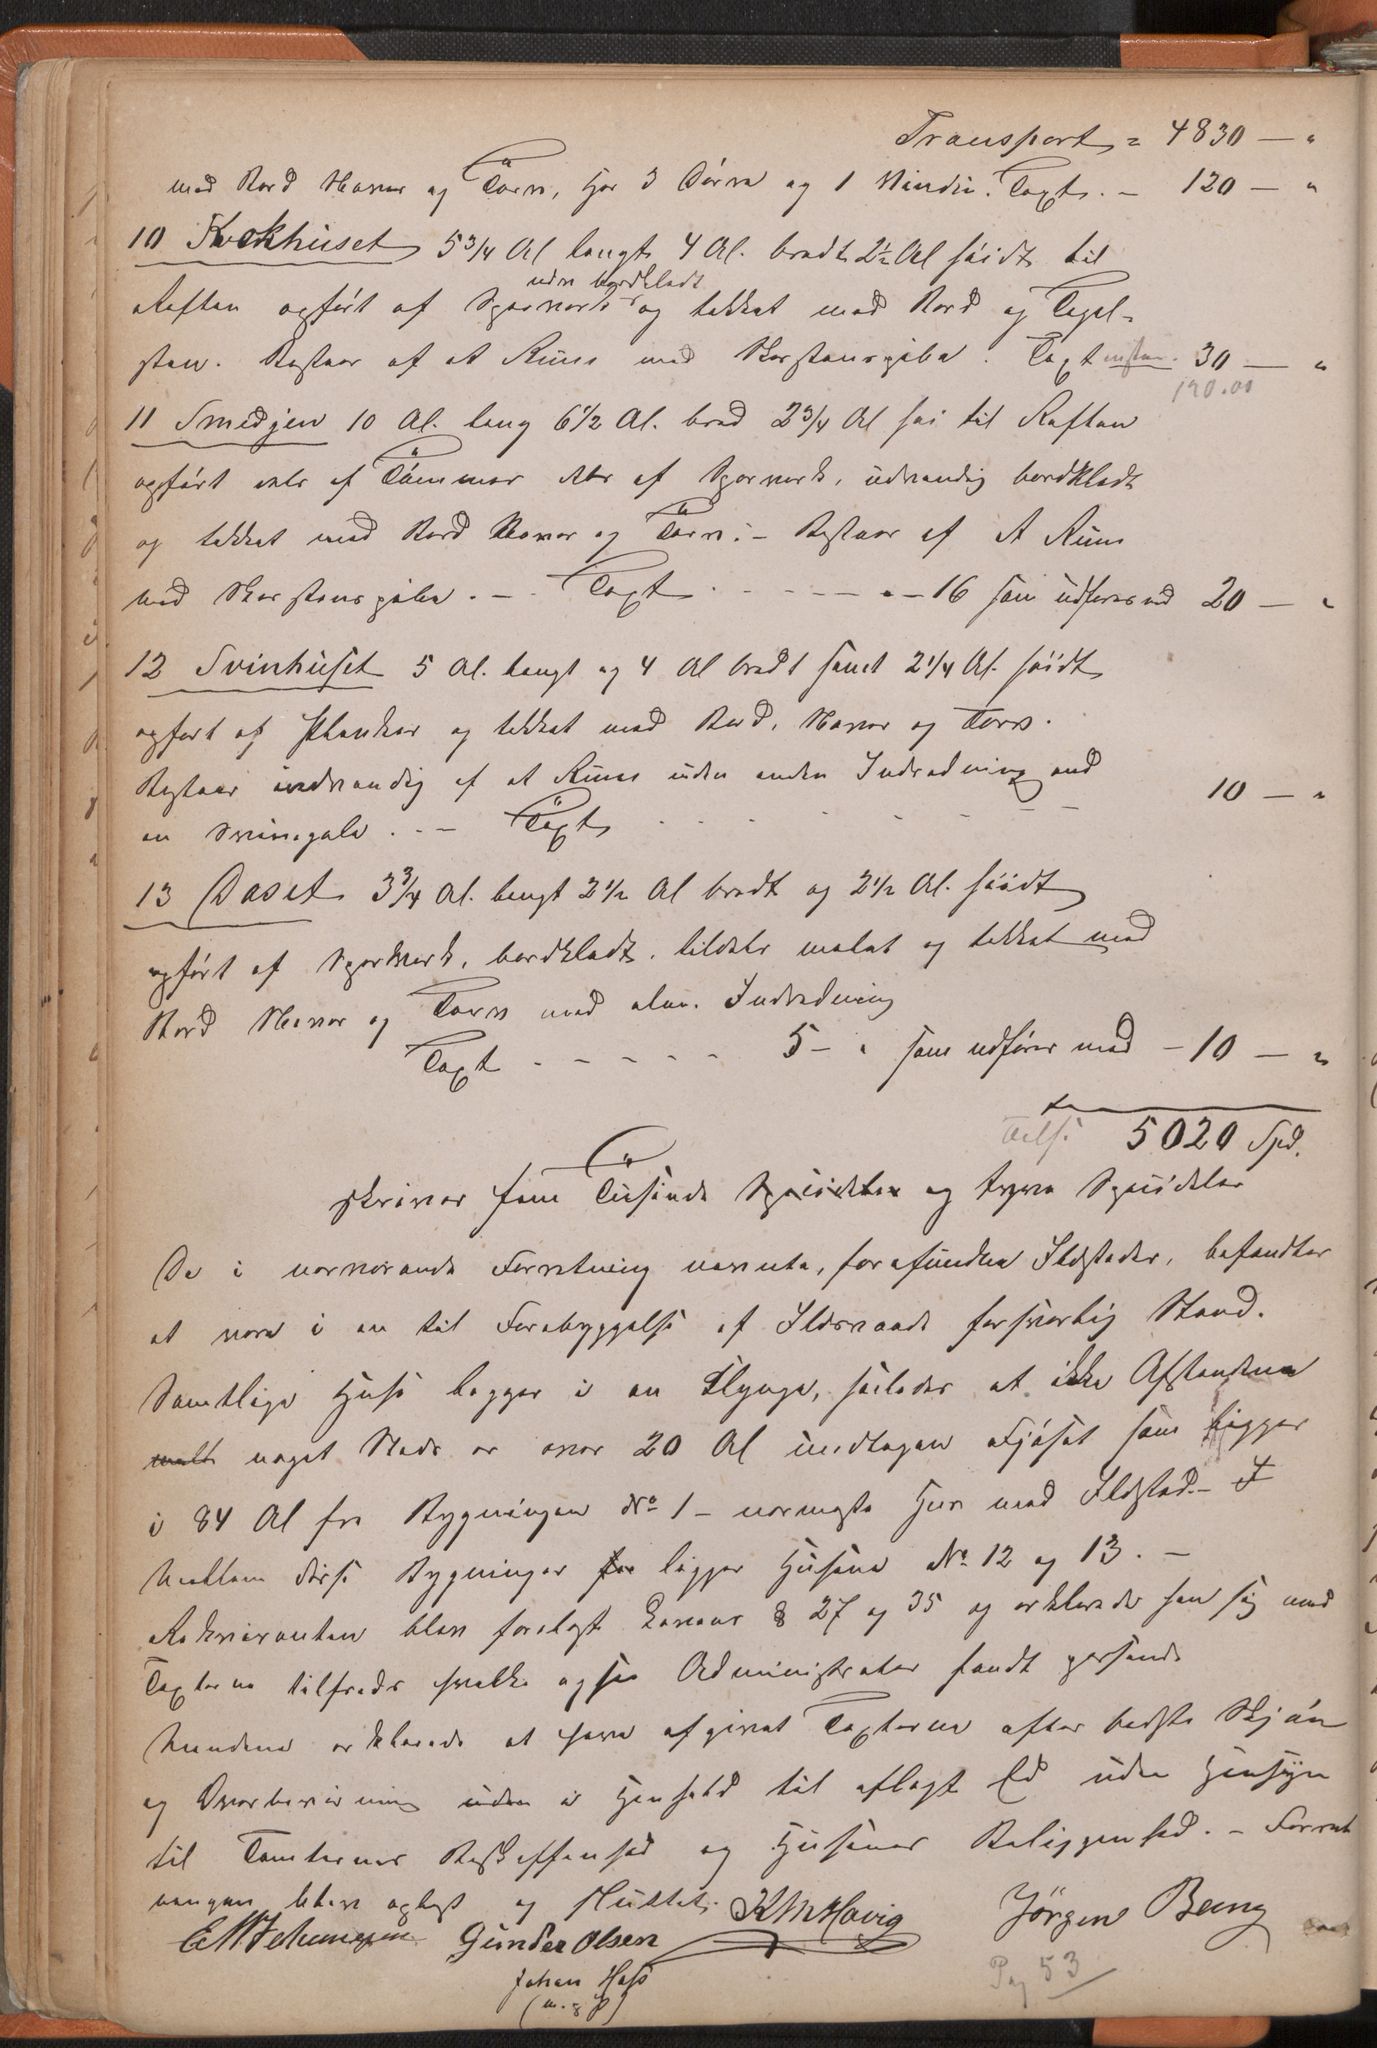 Transport = 4830 — "
med Bord Næver og Törv, har 3 Dörre og 1 Vindu. Taxt. — 120 — "
10 Kokhuset 5 3/4 Al langt 4 Al. bredt 2 1/2 Al höidt til
uden bordklædt
Raften opfört af Sperverk og tækket med Bord og Tagel-
sten. Bestaar af et Rum med Skorstenspibe. Taxt 30 — "
120.00
11 Smedjen 10 Al. lang 6 1/2 Al. bred 2 3/4 Al höi til Raften
opfört dels af Tömmer dels af Sperverk, udvendig bordklædt
og tækket med Bord Næver og Törv. — Bestaar af et Rum
med Skorstenspibe. — Taxt - - - - - 16 som udföres med 20 — "
12 Svinhuset 5 Al. langt og 4 Al bredt samt 2 1/4 Al. höidt
opfört af Planker og tækket med Bord, Næver og Torv.
Bestaar indvendig af et Rum uden anden Indredning end
en Svinegale. — Taxt - - - - - 10 — "
13 Daset 3 3/4 Al. langt 2 1/2 Al bredt og 2 1/2 Al. höidt
opfört af Sperverk, bordklædt, tildels malet og tækket med
Bord Næver og Torv med alm. Indredning
Taxt - - - - - 5 — " som udföres med — 10 — "
Tils. 5020 Spd.
skriver fem Tusinde Speciedaler og tyve Speciedaler
De i nærværende Forretning nævnte, forefundne Ildsteder, befandtes
at være i en til Forebyggelse af Ildsvaade forsvarlig Stand.
Samtlige Huse ligger i en Klynge, saaledes at ikke Afstandene
noget Sted er over 20 Al undtagen Fjöset som ligger
i 84 Al fra Bygningen No 1 — nærmeste Hus med Ildsted. —
Mellem disse Bygninger ligger Husene No 12 og 13. —
Rekvirenten blev forelagt Lovens § 27 og 35 og erklærede han sig med
Taxterne tilfreds hvilke ogsaa Administrator fandt passende
Mændene erklærede at have afgivet Taxterne efter bedste Skjön
og Overbevisning i Henhold til aflagt Ed uden Hensyn
til Tomternes Beskaffenhed og Husenes Beliggenhed. — Forret
ningen blev oplæst og sluttet.
Gunder Olsen K M Havig Jörgen Being
Johan Hass
(m. p. P)
Pag 53